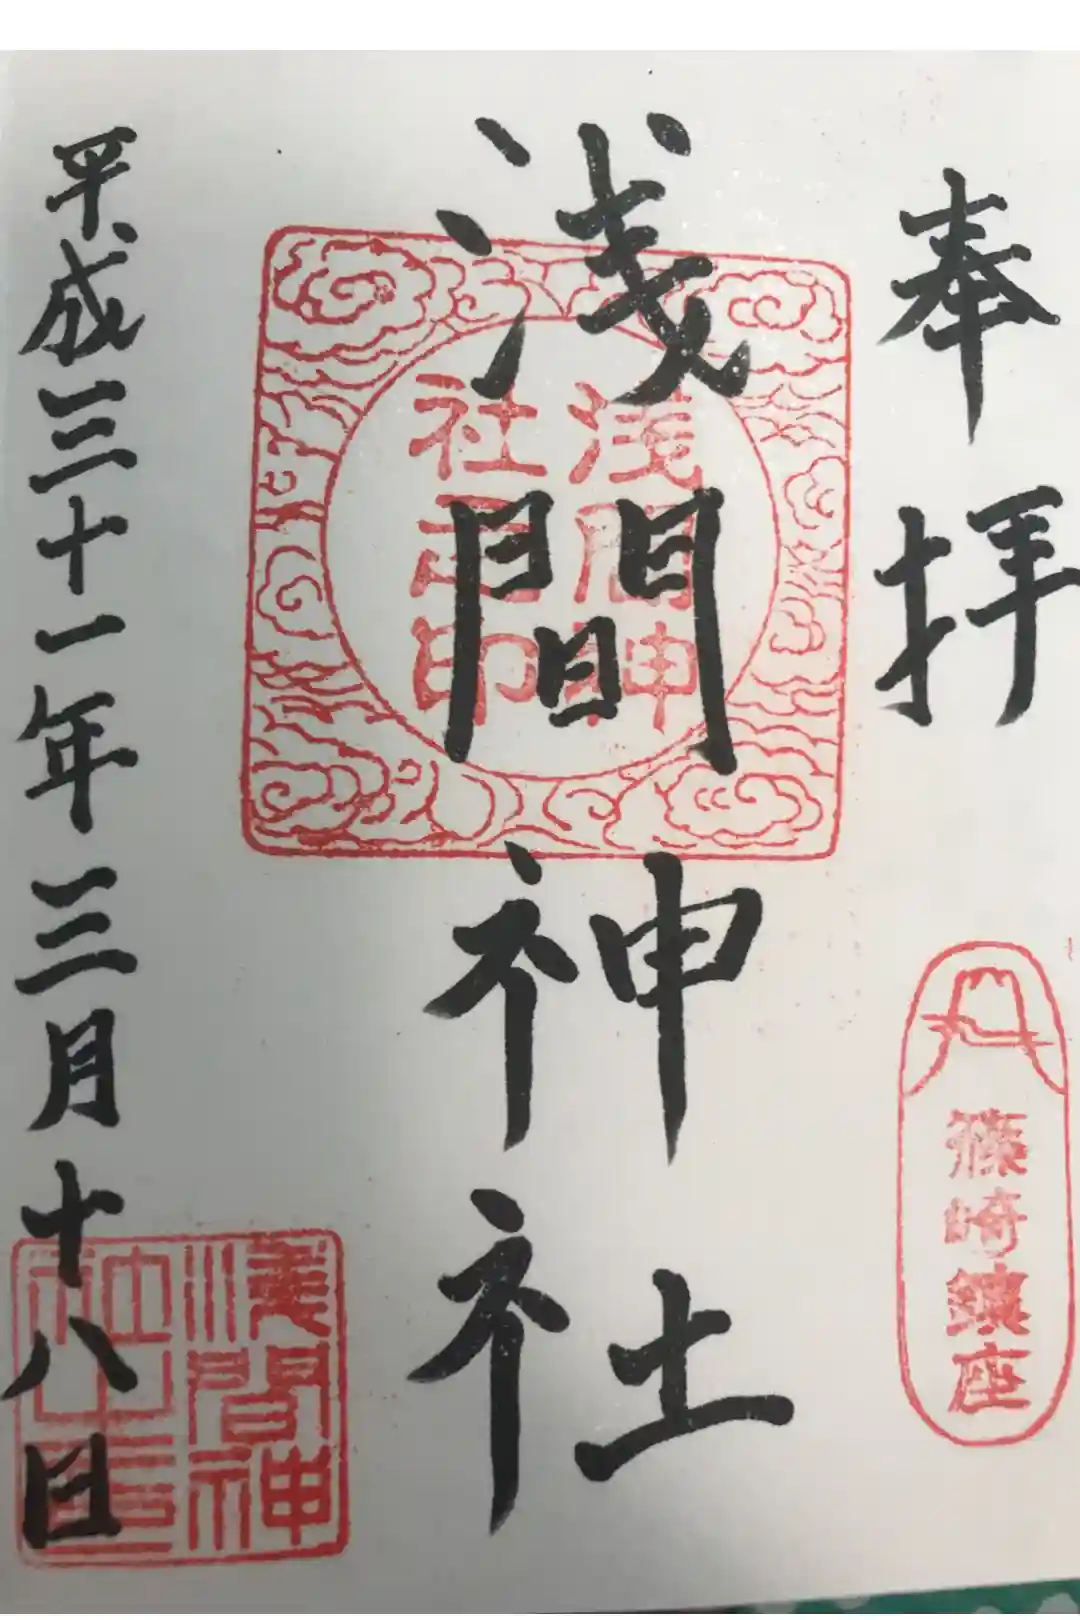 奉拝
篠崎鎮座
浅間神社
浅間神
社之印
平成三十一年三月十八日
浅間神
社